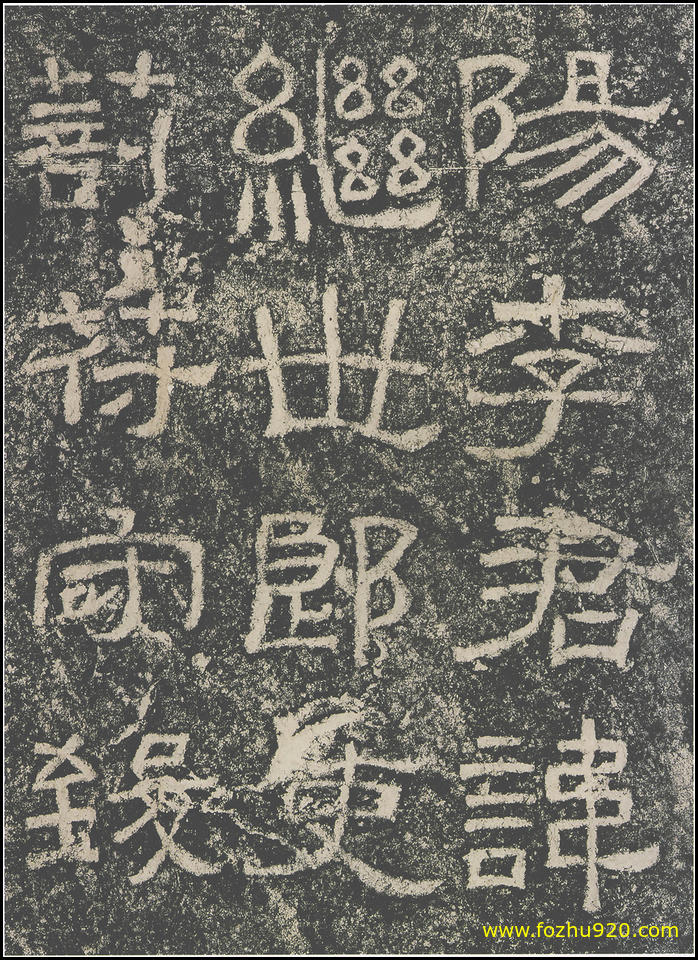 陽李君諱
繼世郎吏
剖符守致
www.fozhu920.com